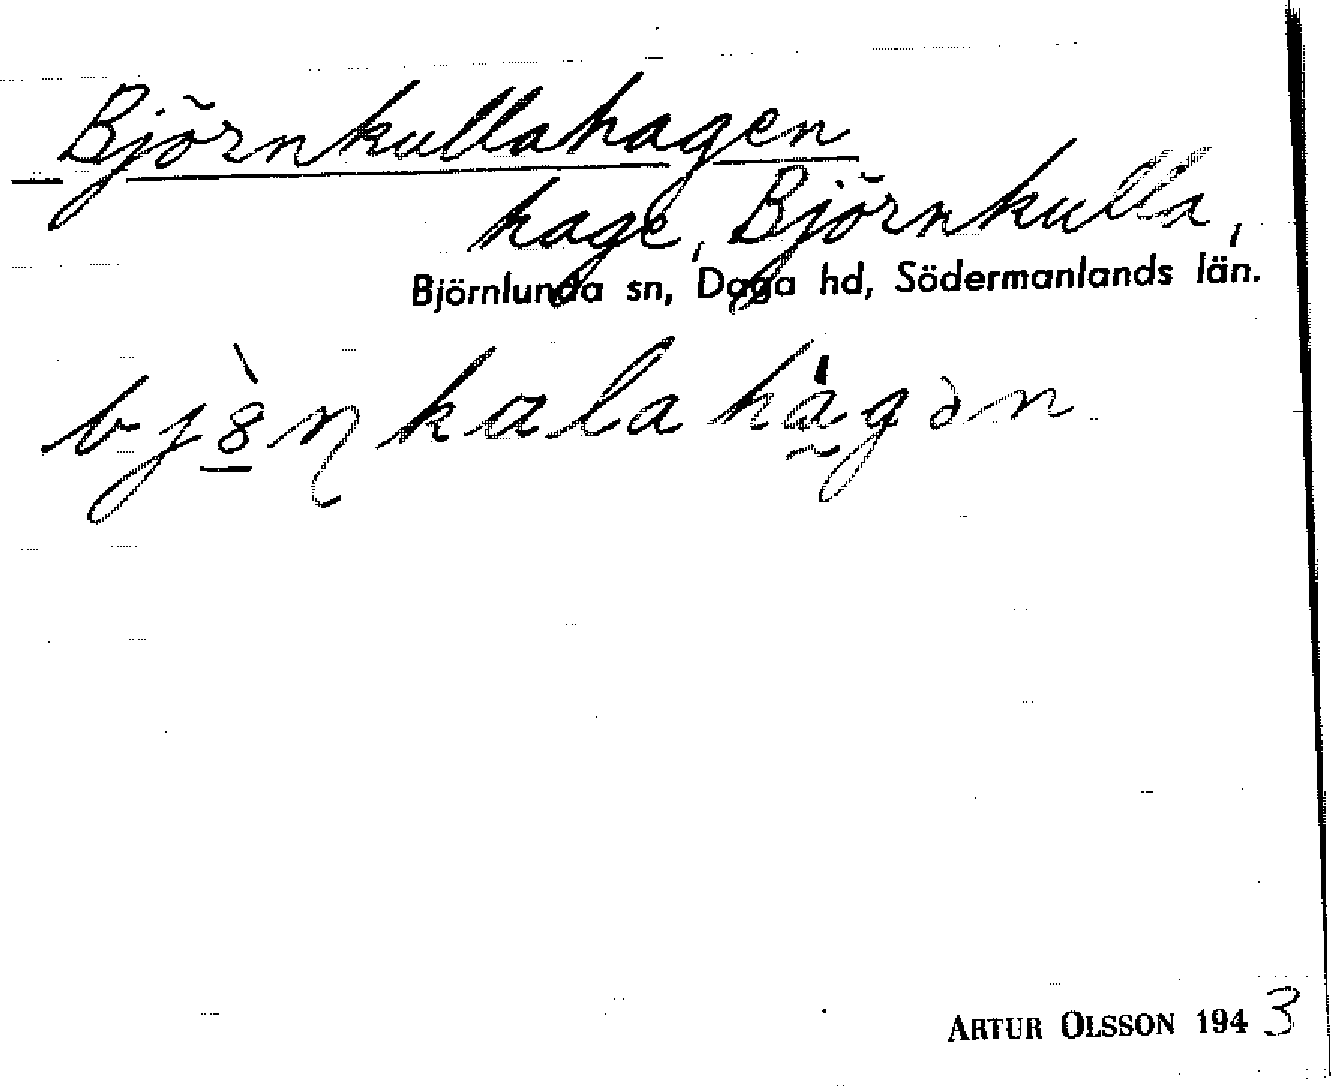 Björnkullahagen
hage, Björnkulla,
Björnlunda sn, Daga hd, Södermanlands län.
ARTUR OLSSON 1943